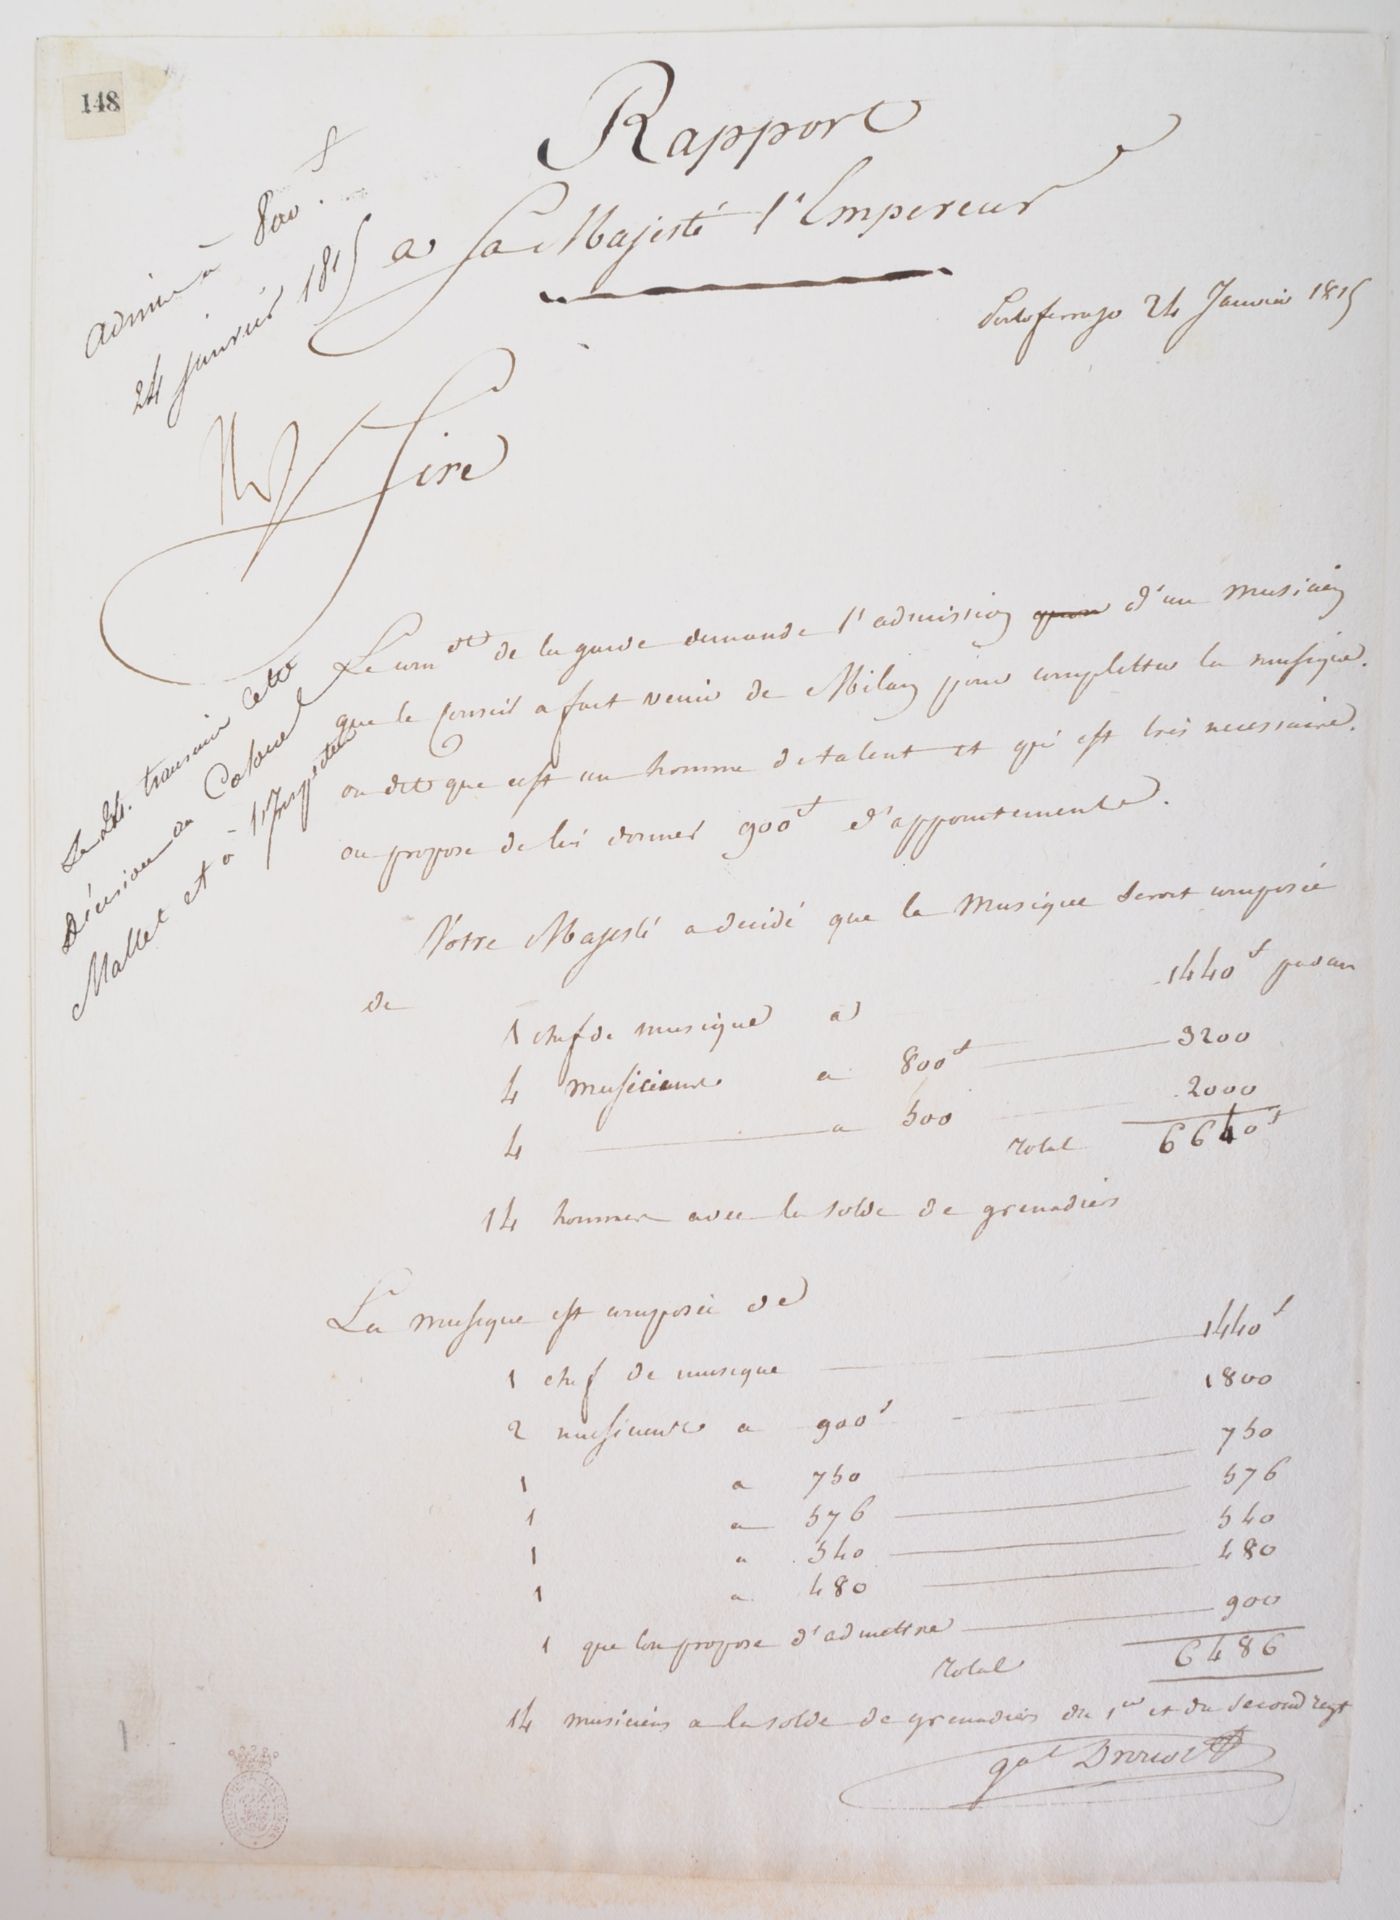 148
Rapport
a Sa Majesté l'Empereur
Portoferrajo 24 Janvier 1815
admis à 800 f
24 janvier 1815
Sire
Le com.dt de la garde demande l'admission d'un musicien
que le Conseil a fait venir de Milan pour completter la musique.
on dit que c'est un homme de talent et qui est très necessaire.
on propose de lui donner 900 f d'appointements.
Le 24. transmis cette
Décision au Colonel
Mallet et à l'Inspecteur
Votre Majesté a decidé que la Musique seroit composée
de
1 chef de musique a 1440 f par an
4 musiciens a 800 f 3200
4 a 500 2000
Total 6640 f
14 hommes avec la solde de grenadiers
La musique est composée de
1 chef de musique 1440 f
2 musiciens a 900 f 1800
1 a 750 750
1 a 576 576
1 a 540 540
1 a 480 480
1 que l'on propose d'admettre 900
Total 6486
14 musiciens a la solde de grenadiers du 1er et du second regt
gal Drouot